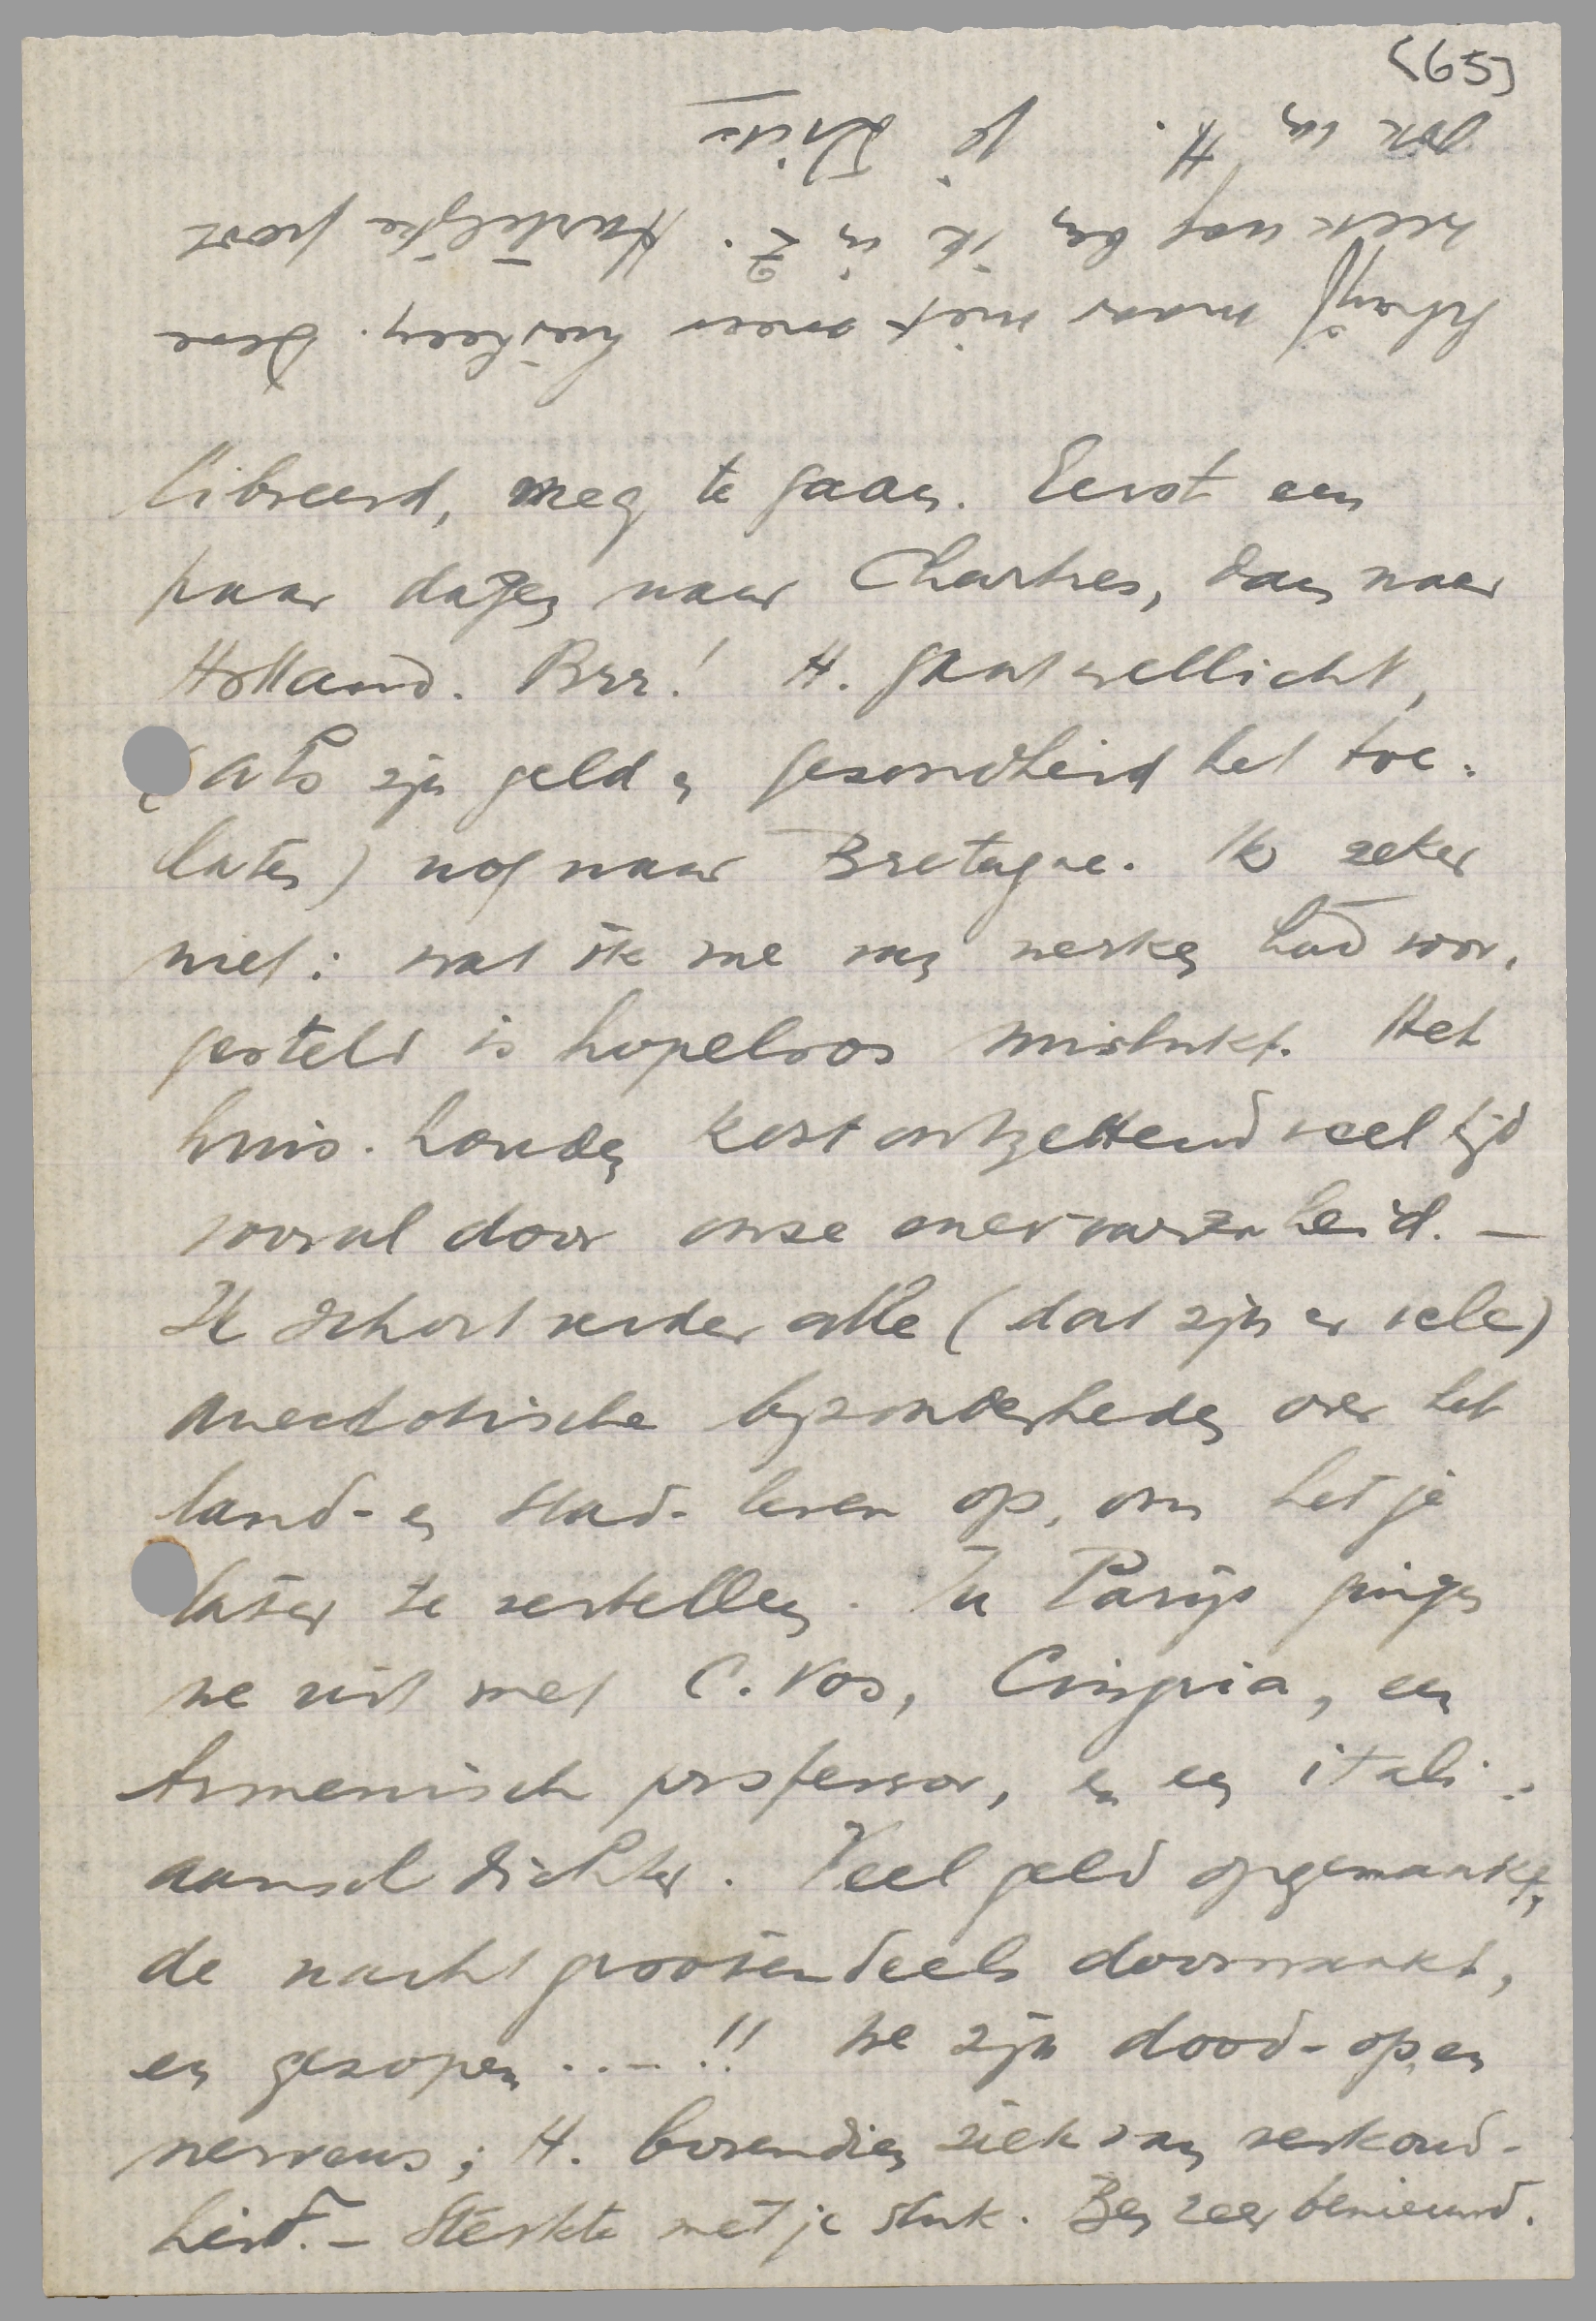 [65]
libreerd, weg te gaan. Eerst een
paar dagen naar Chartres, dan naar
Holland. Brr! H. gaat wellicht,
(als zijn geld en gezondheid het toe-
laten) nog naar Bretagne. Ik zeker
niet: wat ik me van werken had voor-
gesteld is hopeloos mislukt. Het
huis-houden kost ontzettend veel tijd
vooral door onze onervarenheid. —
Ik schort verder alle (dat zijn er vele)
anecdotische byzonderheden over het
land- en stad-leven op, om het je
later te vertellen. In Parijs gingen
we uit met C. Vos, Cingria, een
Armenisch professor, en een itali-
aansch dichter. Veel geld opgemaakt,
de nacht grootendeels doorwaakt,
en gezopen ... !! We zijn dood-op, en
nerveus; H. bovendien ziek van verkoud-
heid. — Sterkte met je stuk. Ben zeer benieuwd.
Schrijf maar niet meer hierheen. Deze
week nog ben ik in Z. Hartelijke groet
ook van H. je